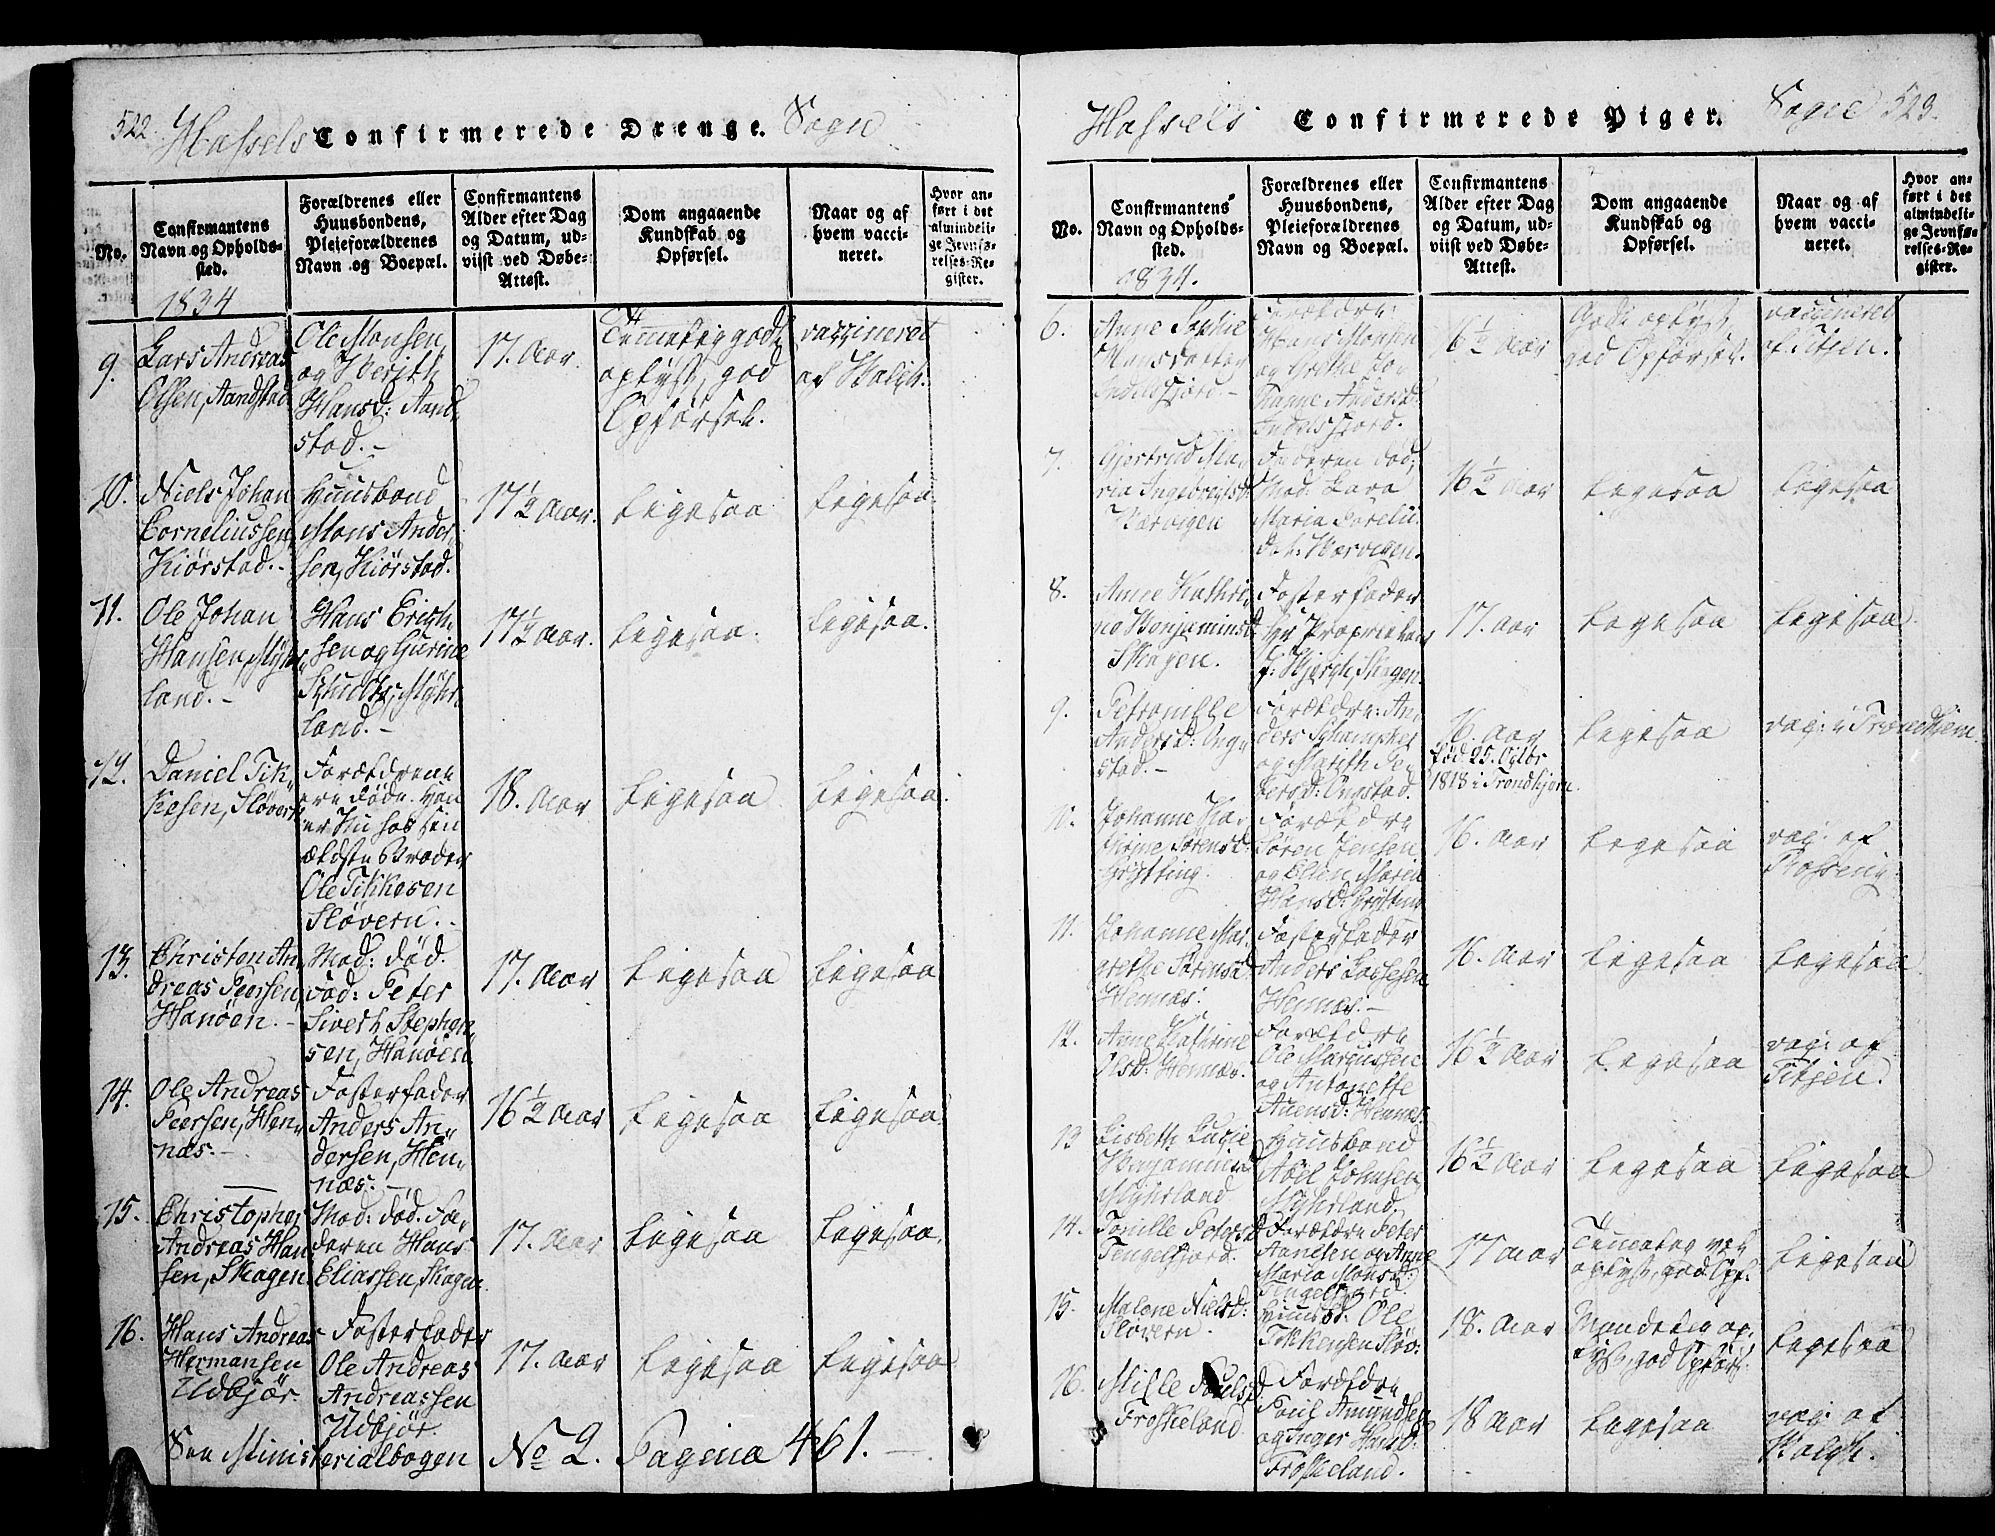 522. Hassels Confirmerede Drenge. Sogn
No.
Confirmantens
Navn og Opholds-
sted.
Forældrenes eller
Huusbondens,
Pleieforældrenes
Navn og Boepæl.
Confirmantens
Alder efter Dag
og Datum, ud-
viist ved Døbe-
Attest.
Dom angaaende
Kundskab og
Opførsel.
Naar og af
hvem vacci-
neret.
Hvor an-
ført i det
almindeli-
ge Jevnfø-
relses-Re-
gister.
1834
9.
Lars Andreas
Olsen, Aandstad
Ole Monsen
og Berith
Hansd: Aand-
stad.-
17. Aar.
Temmelig godt
oplyst, god
Opførsel.
vaccineret
af
10.
Niels Johan
Corneliussen
Kiørstad.-
Huusbond
Mons Ander-
sen, Kiørstad.
17½ Aar.
Ligesaa
Ligesaa
11.
Ole Johan
Hansen, Myhr-
land.-
Hans Erich-
sen og Gurine
Schultz, Myhr-
land.-
17½ Aar.
Ligesaa.
Ligesaa.
12.
Daniel Tik-
kesen, Sløvern
Forældrene
ere døde. Han
er nu hos sin
ældste Broder
Ole Tikkesen
Sløvern.-
18. Aar
Ligesaa
Ligesaa.
13.
Christen An-
dreas Peersen,
Hanøen.-
Mod: død.
Fad: Peter
Siverth Stephen-
sen, Hanøen
17. Aar
Ligesaa
Ligesaa
14.
Ole Andreas
Peersen, Hen-
næs.-
Fosterfader
Anders An-
dersen, Hen-
næs.-
16½ Aar
Ligesaa
Ligesaa
15.
Christopher
Andreas Han-
sen, Skagen
Mod: død. Fa-
deren Hans
Eliassen, Skagen
17. Aar
Ligesaa
Ligesaa.
16.
Hans Andreas
Hermansen
Udbjør.
Fosterfader
Ole Andreas
Andreassen
Udbjør.
17. Aar
Ligesaa
Ligesaa
See Ministerialbogen No 2. Pagina 461.-
Hassels Confirmerede Piger. Sogn 523.
No.
Confirmantens
Navn og Opholds-
sted.
Forældrenes eller
Huusbondens,
Pleieforældrenes
Navn og Boepæl.
Confirmantens
Alder efter Dag
og Datum, ud-
viist ved Døbe-
Attest.
Dom angaaende
Kundskab og
Opførsel.
Naar og af
hvem vacci-
neret.
Hvor an-
ført i det
almindeli-
ge Jevnfø-
relses-Re-
gister.
1834.
6.
Anne Sophie
Hansdatter
Indelsfjord.-
Forældre:
Hans Monsen
og Grethe Jo-
hanne Andersd.
Indelsfjord.
16½ Aar
Godt oplyst,
god Opførsel.
vaccineret
af Titjen.
7.
Gjertrud Ma-
ria Ingebregtsd:
Wærvigen
Faderen død;
Mod: Lava
Maria
Wærvigen.
16½ Aar
Ligesaa
Ligesaa
8.
Anne Kathri-
na Benjaminsd
Skogen.
Fosterfader
Hr Proprietair
17. aar
Ligesaa
Ligesaa.
9.
Petronille
Andersd: Ing-
stad.-
Forældre: An-
ders
og Marith Pe-
dersd: Ingstad.
16. aar
Fød 25. Octbr
1818 i Trondhjem
Ligesaa
vac: i Trondhjem.
10.
Johanne Ka-
thrine Sørensd:
Grytting.
Forældre
Søren Jensen
og Ellen Maria
Hansd: Grytting
16. Aar
Ligesaa
vac: af
11.
Johanne Mar-
grethe Sørensd:
Hennæs:
Fosterfader
Anders
Hennæs:-
16. Aar
Ligesaa
Ligesaa.
12.
Anne Kathrine
Olsd: Hennæs.
Forældre
Ole Marcussen
og Antonette
Hennæs:
16½ Aar
Ligesaa
vac: af
Titjen.
13
Lisbeth Lucie
Benjaminsd
Myhrland
Huusbond
Abel Johnsen
Myhrland.
16½ Aar
Ligesaa
Ligesaa
14.
Tonille Petersd:
Tengelfjord.
Forældre Peter
Hansen og Anne
Maria Monsd:
Tengelfjord.
17 aar
Temmelig vel
oplyst, god Opf.
Ligesaa
15.
Malene Nielsd:
Sløvern.
Huusb. Ole
Tikkensen Sløv:
18. Aar
Maadelig op-
lyst, god Opførs:
Ligesaa
16.
Mille Poulsd.
Froskeland
Forældre
Poul Amundsen
og Inger Hansd:
Froskeland.
18 aar
Ligesaa
vac: af